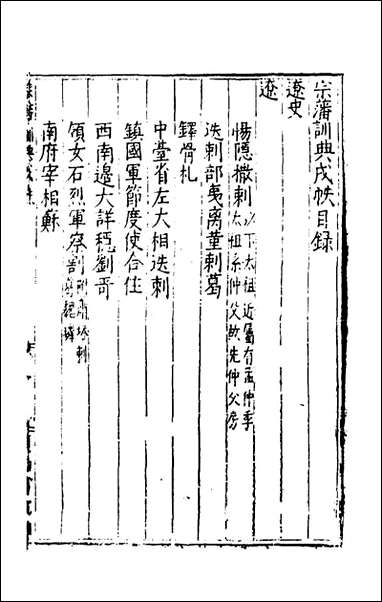 宗藩訓典戌帙目錄
遼史
遼
惕隱撒剌以下太祖近屬有孟仲季太祖系仲父故先仲父房
迭剌部夷离堇剌葛
鐸骨札
中臺省左大相迭剌
鎮國軍節度使合住
西南邊大詳穩劉哥
領女石烈軍察割
南府宰相蘇